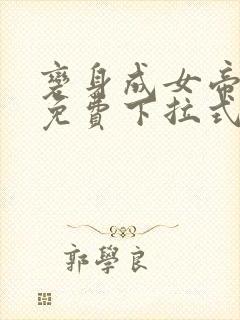 变身成女帝
免費下拉式
郭學良